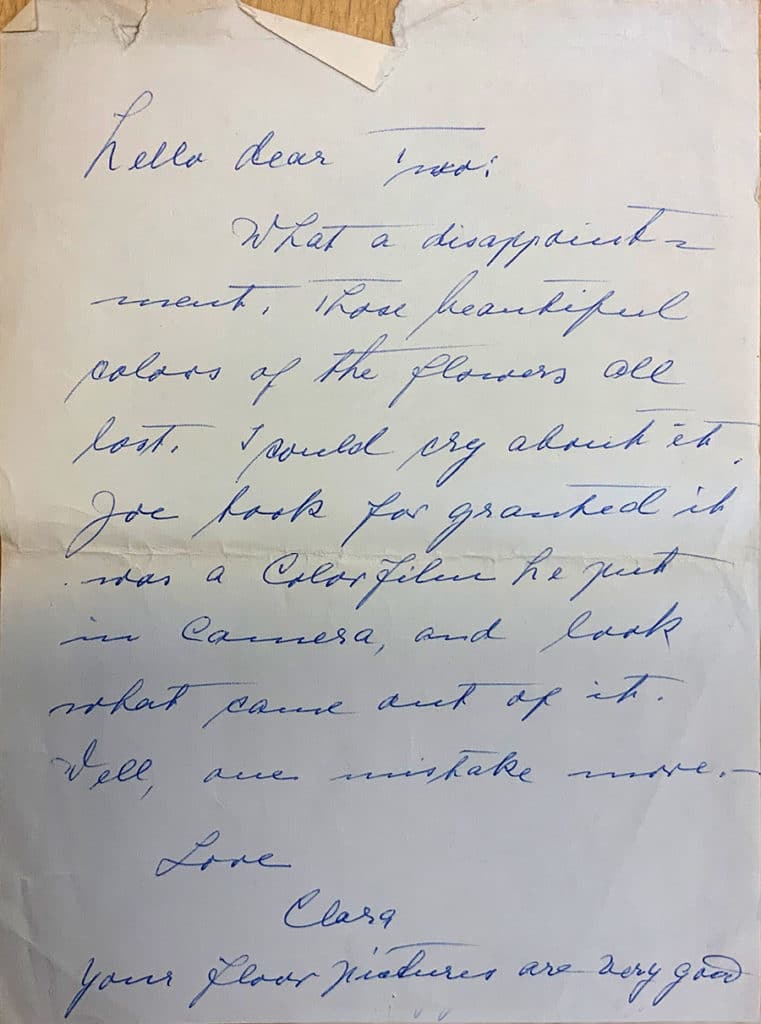 Hello dear Two:
What a disappoint=
ment. Those beautiful
colors of the flowers all
lost. I could cry about it.
Joe took for granted it
was a Colorfilm he put
in Camera, and look
what came out of it.
Well, one mistake more.–
Love
Clara
Your floor pictures are very good